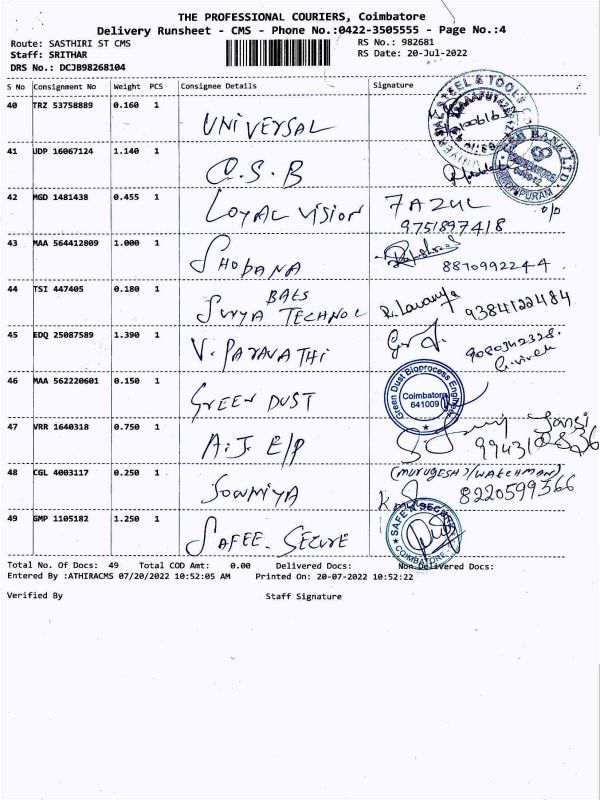 THE PROFESSIONAL COURIERS, Coimbatore
Delivery Runsheet - CMS - Phone No.:0422-3505555 - Page No.:4
Route: SASTHIRI ST CMS RS No.: 982681
Staff: SRITHAR RS Date: 20-Jul-2022
DRS No.: DCJB98268104
S No Consignment No Weight PCS Consignee Details Signature
40 TRZ 53758889 0.160 1 UNIVERSAL
41 UDP 16067124 1.140 1 Q.S.B
42 MGD 1481438 0.455 1 LOYAL VISION FAZUL
9751897418
43 MAA 564412809 1.000 1 SHOBANA 8870992244
44 TSI 447405 0.180 1 SURYA TECHNOL R. Lavanya 9384122484
45 EDQ 25087589 1.390 1 V. PARAVATHI
G. Vivek
46 MAA 562220601 0.150 1 GREEN DUST Green Dust Bioprocess Engineer
Coimbatore
641009
47 VRR 1640318 0.750 1 A.J. E/P
48 CGL 4003117 0.250 1 SOWMIYA (MURUGESH)/WATCHMAN)
8220599366
49 GMP 1105182 1.250 1 SAFEE. SECURE
COIMBATORE
Total No. Of Docs: 49 Total COD Amt: 0.00 Delivered Docs: Non Delivered Docs:
Entered By :ATHIRACMS 07/20/2022 10:52:05 AM Printed On: 20-07-2022 10:52:22
Verified By Staff Signature